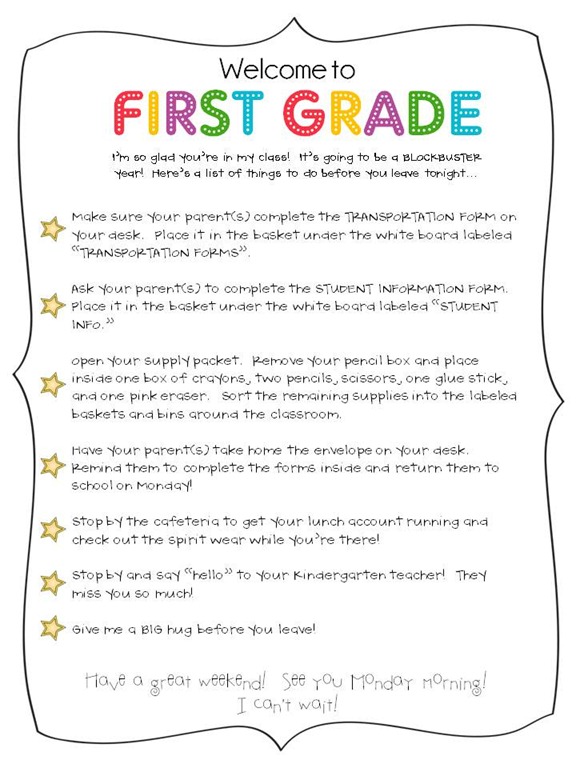 Welcome to
FIRST GRADE
I'm so glad you're in my class! It's going to be a BLOCKBUSTER
year! Here's a list of things to do before you leave tonight...
Make sure your parent(s) complete the TRANSPORTATION FORM on
your desk. Place it in the basket under the white board labeled
"TRANSPORTATION FORMS".
Ask your parent(s) to complete the STUDENT INFORMATION FORM.
Place it in the basket under the white board labeled "STUDENT
INFO."
Open your supply packet. Remove your pencil box and place
inside one box of crayons, two pencils, scissors, one glue stick,
and one pink eraser. Sort the remaining supplies into the labeled
baskets and bins around the classroom.
Have your parent(s) take home the envelope on your desk.
Remind them to complete the forms inside and return them to
school on Monday!
Stop by the cafeteria to get your lunch account running and
check out the spirit wear while you're there!
Stop by and say "hello" to your Kindergarten teacher! They
miss you so much!
Give me a BIG hug before you leave!
Have a great weekend! See you Monday morning!
I can't wait!